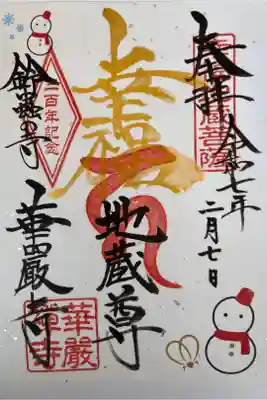 奉拝
令和七年
二月七日
幸福
地蔵尊
三百年記念
鈴蟲の寺
華厳寺
華厳禅寺